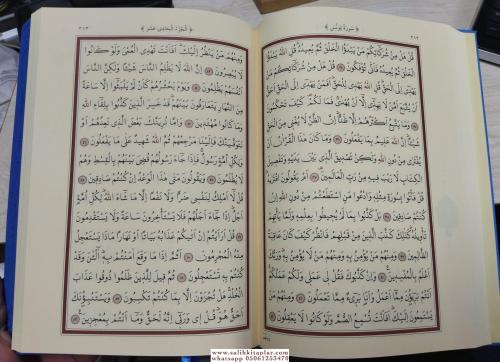 ﴿ سُورَةُ يُونُسَ ﴾ ٢١٢
قُلْ هَلْ مِنْ شُرَكَائِكُمْ مَنْ يَبْدَؤُا الْخَلْقَ ثُمَّ يُعِيدُهُ قُلِ اللّٰهُ يَبْدَؤُا
الْخَلْقَ ثُمَّ يُعِيدُهُ فَاَنّٰى تُؤْفَكُونَ ٣٤ قُلْ هَلْ مِنْ شُرَكَائِكُمْ مَنْ
يَهْدِي اِلَى الْحَقِّ قُلِ اللّٰهُ يَهْدِي لِلْحَقِّ اَفَمَنْ يَهْدِي اِلَى الْحَقِّ اَحَقُّ
اَنْ يُتَّبَعَ اَمَّنْ لَا يَهِدِّي اِلَّا اَنْ يُهْدٰى فَمَا لَكُمْ كَيْفَ تَحْكُمُونَ
٣٥ وَمَا يَتَّبِعُ اَكْثَرُهُمْ اِلَّا ظَنًّا اِنَّ الظَّنَّ لَا يُغْنِي مِنَ الْحَقِّ
شَيْئًا اِنَّ اللّٰهَ عَلِيمٌ بِمَا يَفْعَلُونَ ٣٦ وَمَا كَانَ هٰذَا الْقُرْاٰنُ اَنْ
يُفْتَرٰى مِنْ دُونِ اللّٰهِ وَلٰكِنْ تَصْدِيقَ الَّذِي بَيْنَ يَدَيْهِ وَتَفْصِيلَ
الْكِتَابِ لَا رَيْبَ فِيهِ مِنْ رَبِّ الْعَالَمِينَ ٣٧ اَمْ يَقُولُونَ افْتَرٰيهُ
قُلْ فَأْتُوا بِسُورَةٍ مِثْلِهِ وَادْعُوا مَنِ اسْتَطَعْتُمْ مِنْ دُونِ اللّٰهِ اِنْ كُنْتُمْ
صَادِقِينَ ٣٨ بَلْ كَذَّبُوا بِمَا لَمْ يُحِيطُوا بِعِلْمِهِ وَلَمَّا يَأْتِهِمْ
تَأْوِيلُهُ كَذٰلِكَ كَذَّبَ الَّذِينَ مِنْ قَبْلِهِمْ فَانْظُرْ كَيْفَ كَانَ عَاقِبَةُ
الظَّالِمِينَ ٣٩ وَمِنْهُمْ مَنْ يُؤْمِنُ بِهِ وَمِنْهُمْ مَنْ لَا يُؤْمِنُ بِهِ وَرَبُّكَ
اَعْلَمُ بِالْمُفْسِدِينَ ٤٠ وَاِنْ كَذَّبُوكَ فَقُلْ لِي عَمَلِي وَلَكُمْ عَمَلُكُمْ
اَنْتُمْ بَرِيؤُنَ مِمَّا اَعْمَلُ وَاَنَا بَرِيءٌ مِمَّا تَعْمَلُونَ ٤١ وَمِنْهُمْ مَنْ
يَسْتَمِعُونَ اِلَيْكَ اَفَاَنْتَ تُسْمِعُ الصُّمَّ وَلَوْ كَانُوا لَا يَعْقِلُونَ ٤٢
٢١٣ ﴿ اَلْجُزْءُ الْحَادِي عَشَرَ ﴾
وَمِنْهُمْ مَنْ يَنْظُرُ اِلَيْكَ اَفَاَنْتَ تَهْدِي الْعُمْيَ وَلَوْ كَانُوا
لَا يُبْصِرُونَ ٤٣ اِنَّ اللّٰهَ لَا يَظْلِمُ النَّاسَ شَيْئًا وَلٰكِنَّ النَّاسَ
اَنْفُسَهُمْ يَظْلِمُونَ ٤٤ وَيَوْمَ يَحْشُرُهُمْ كَاَنْ لَمْ يَلْبَثُوا اِلَّا سَاعَةً
مِنَ النَّهَارِ يَتَعَارَفُونَ بَيْنَهُمْ قَدْ خَسِرَ الَّذِينَ كَذَّبُوا بِلِقَاءِ اللّٰهِ
وَمَا كَانُوا مُهْتَدِينَ ٤٥ وَاِمَّا نُرِيَنَّكَ بَعْضَ الَّذِي نَعِدُهُمْ اَوْ
نَتَوَفَّيَنَّكَ فَاِلَيْنَا مَرْجِعُهُمْ ثُمَّ اللّٰهُ شَهِيدٌ عَلٰى مَا يَفْعَلُونَ ٤٦
وَلِكُلِّ اُمَّةٍ رَسُولٌ فَاِذَا جَاءَ رَسُولُهُمْ قُضِيَ بَيْنَهُمْ بِالْقِسْطِ وَهُمْ
لَا يُظْلَمُونَ ٤٧ وَيَقُولُونَ مَتٰى هٰذَا الْوَعْدُ اِنْ كُنْتُمْ صَادِقِينَ ٤٨
قُلْ لَا اَمْلِكُ لِنَفْسِي ضَرًّا وَلَا نَفْعًا اِلَّا مَا شَاءَ اللّٰهُ لِكُلِّ اُمَّةٍ
اَجَلٌ اِذَا جَاءَ اَجَلُهُمْ فَلَا يَسْتَأْخِرُونَ سَاعَةً وَلَا يَسْتَقْدِمُونَ
٤٩ قُلْ اَرَاَيْتُمْ اِنْ اَتٰيكُمْ عَذَابُهُ بَيَاتًا اَوْ نَهَارًا مَاذَا يَسْتَعْجِلُ
مِنْهُ الْمُجْرِمُونَ ٥٠ اَثُمَّ اِذَا مَا وَقَعَ اٰمَنْتُمْ بِهِ اٰلْـٰٔنَ وَقَدْ
كُنْتُمْ بِهِ تَسْتَعْجِلُونَ ٥١ ثُمَّ قِيلَ لِلَّذِينَ ظَلَمُوا ذُوقُوا عَذَابَ
الْخُلْدِ هَلْ تُجْزَوْنَ اِلَّا بِمَا كُنْتُمْ تَكْسِبُونَ ٥٢ وَيَسْتَنْبِؤُنَكَ
اَحَقٌّ هُوَ قُلْ اِي وَرَبِّي اِنَّهُ لَحَقٌّ وَمَا اَنْتُمْ بِمُعْجِزِينَ ٥٣
www.salihkitaplar.com
whatsapp 05061253470